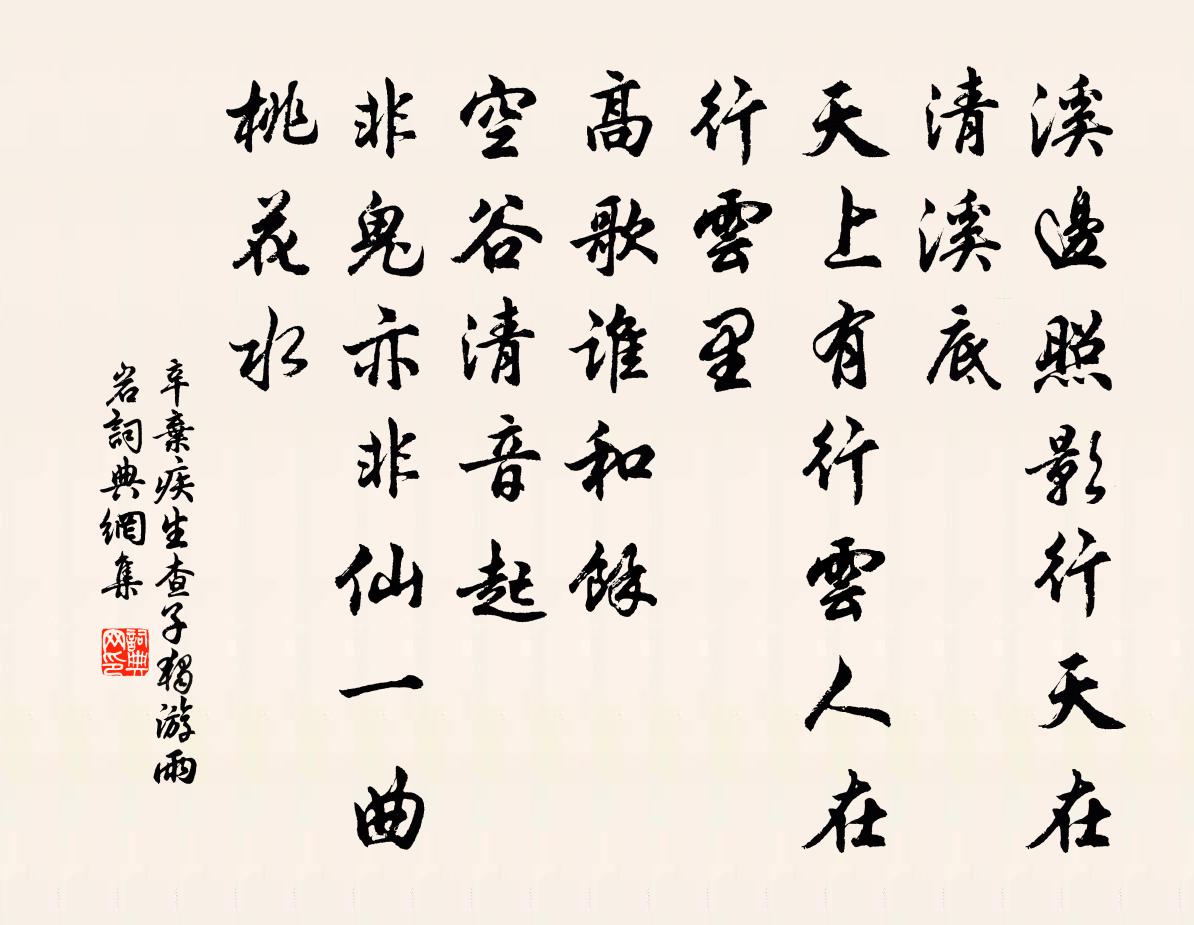 溪邊照影行天在
清溪底
天上有行雲人在
行雲里
高歌誰和餘
空谷清音起
非鬼亦非仙一曲
桃花水
辛棄疾生查子獨游雨
岩詞典網集
詞典网印